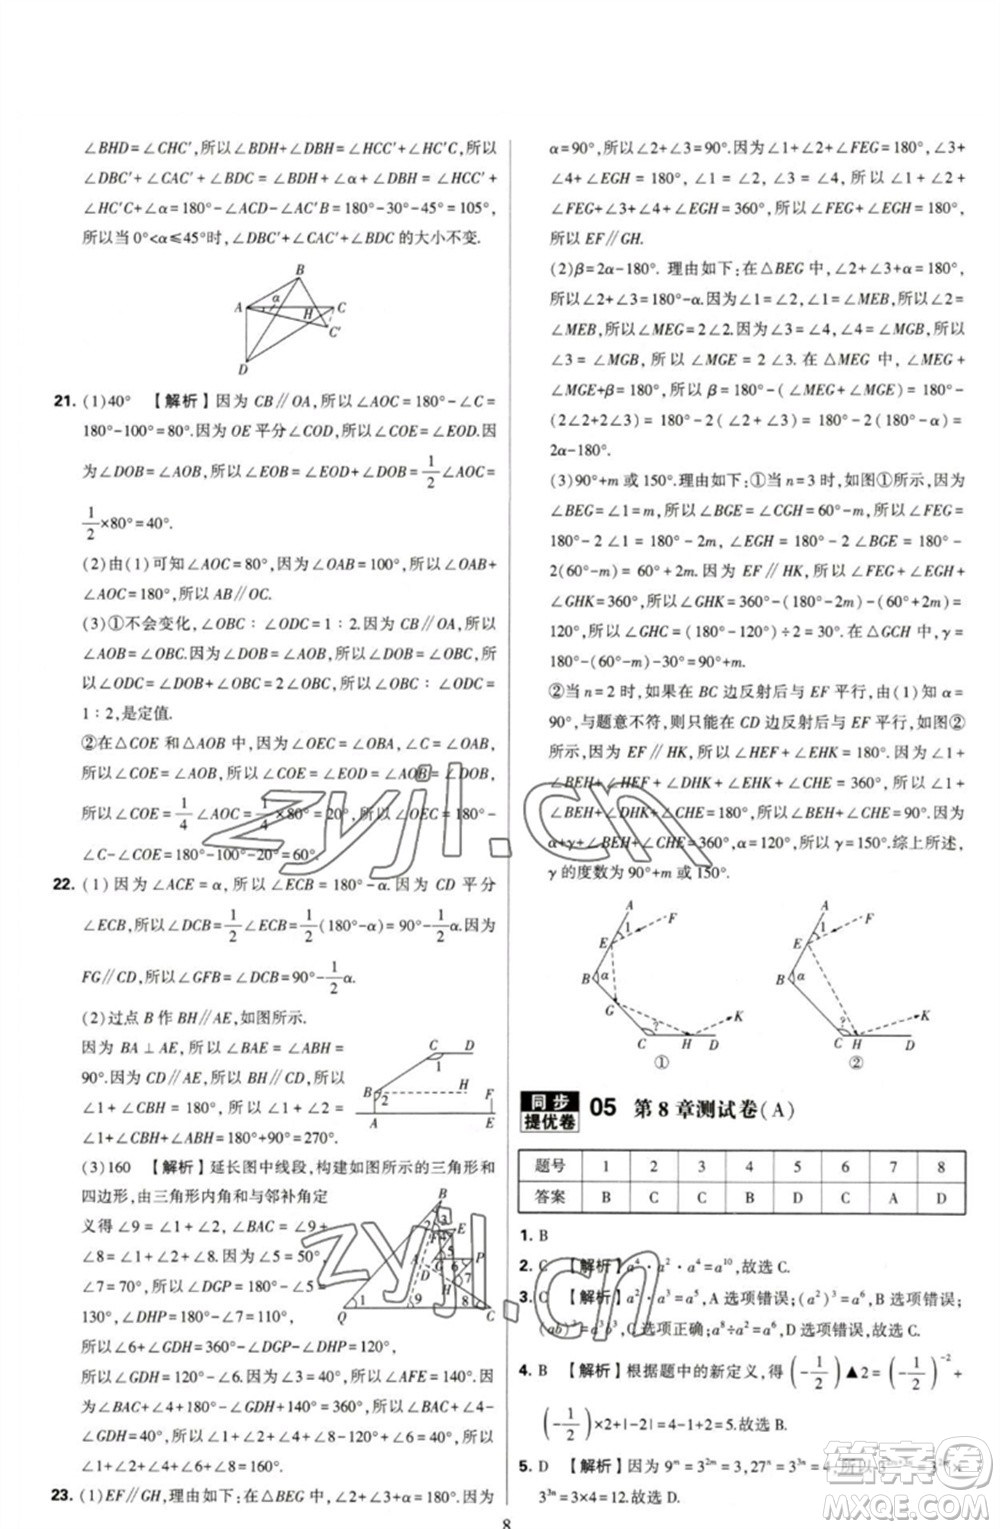 ∠BHD=∠CHC′,所以∠BDH+∠DBH=∠HCC′+∠HC′C,所以
∠DBC′+∠CAC′+∠BDC=∠BDH+∠α+∠DBH=∠HCC′+
∠HC′C+∠α=180°-∠ACD-∠AC′B=180°-30°-45°=105°,
所以当0°<α≤45°时,∠DBC′+∠CAC′+∠BDC的大小不变.
B
A α H C
C′
D
21. (1)40° 【解析】因为CB∥OA,所以∠AOC=180°-∠C=
180°-100°=80°.因为OE平分∠COD,所以∠COE=∠EOD.因
为∠DOB=∠AOB,所以∠EOB=∠EOD+∠DOB=1/2∠AOC=
1/2×80°=40°.
(2)由(1)可知∠AOC=80°,因为∠OAB=100°,所以∠OAB+
∠AOC=180°,所以AB∥OC.
(3)①不会变化,∠OBC∶∠ODC=1∶2.因为CB∥OA,所以
∠AOB=∠OBC.因为∠DOB=∠AOB,所以∠DOB=∠OBC,所
以∠ODC=∠DOB+∠OBC=2∠OBC,所以∠OBC∶∠ODC=
1∶2,是定值.
②在△COE和△AOB中,因为∠OEC=∠OBA,∠C=∠OAB,
所以∠COE=∠AOB,所以∠COE=∠EOD=∠DOB=∠AOB,
所以∠COE=1/4∠AOC=1/4×80°=20°,所以∠OEC=180°-
∠C-∠COE=180°-100°-20°=60°.
22. (1)因为∠ACE=α,所以∠ECB=180°-α.因为CD平分
∠ECB,所以∠DCB=1/2∠ECB=1/2(180°-α)=90°-1/2α.因为
FG∥CD,所以∠GFB=∠DCB=90°-1/2α.
(2)过点B作BH∥AE,如图所示.
因为BA⊥AE,所以∠ABH=
90°.因为CD∥AE,所以BH∥
CD,所以∠1+∠CBH=180°,所
以∠1+∠CBA=∠1+∠CBH+∠ABH=180°+90°=270°.
C D
1
B H F
A E
(3)160 【解析】延长图中线段,构建如图所示的三角形和
四边形,由三角形内角和与邻补角定
义得∠9=∠1+∠2,∠BAC=∠9+
∠8=∠1+∠2+∠8=110°,所以
∠7=70°,所以∠DGP=180°-∠5=
130°,∠DHP=180°-∠7=110°,
所以∠6+∠GDH=360°-∠DGP-∠DHP=120°,所以
∠GDH=120°-∠6.因为∠6=∠4,所以∠AFE=180°-
∠3-∠4=180°-20°-∠6=160°-∠6,所以∠AFE-
∠GDH=40°,所以∠1+∠2+∠8+∠AFE-∠GDH=120°+
40°=160°.
B
E
P
Q
C
23. (1)EF∥GH,理由如下:在△BEG中,∠2+∠3+α=180°,因为
α=90°,所以∠2+∠3=90°.因为∠1+∠2+∠FEG=180°,∠3+
∠4+∠EGH=180°,∠1=∠2,∠3=∠4,所以∠1+∠2+
∠FEG+∠3+∠4+∠EGH=360°,所以∠FEG+∠EGH=180°,
所以EF∥GH.
(2)β=2α-180°.理由如下:在△BEG中,∠2+∠3+α=
180°,所以∠2+∠3=180°-α.因为∠1=∠2,∠1=∠MEB,所以∠2=
∠MEB,所以∠MEG=2∠2.因为∠3=∠4,∠4=∠MGB,所
以∠3=∠MGB,所以∠MGE=2∠3.在△MEG中,∠MEG+
∠MGE+β=180°,所以β=180°-(∠MEG+∠MGE)=180°-
(2∠2+2∠3)=180°-2(∠2+∠3)=180°-2(180°-α)=
2α-180°.
(3)90°+m或150°.理由如下:①当n=3时,如图①所示,因为
∠BEG=∠1=m,所以∠BGE=∠CGH=60°-m,所以∠FEG=
180°-2∠1=180°-2m,∠EGH=180°-2∠BGE=180°-
2(60°-m)=60°+2m.因为EF∥HK,所以∠FEG+∠EGH+
∠GHK=360°,所以∠GHK=360°-(180°-2m)-(60°+2m)=
120°,所以∠GHC=(180°-120°)÷2=30°.在△GCH中,γ=
180°-(60°-m)-30°=90°+m.
②当n=2时,如果在BC边反射后与EF平行,由(1)知α=
90°,与题意不符,则只能在CD边反射后与EF平行,如图②
所示,因为EF∥HK,所以∠HEF+∠EHK=180°,因为∠1+
∠BEH+∠HEF+∠DHK+∠EHK+∠CHE=360°,所以∠1+
∠BEH+∠DHK+∠CHE=180°,因为∠1=∠BEH,∠DHK=
∠CHE,所以∠BEH+∠CHE=90°.因为∠BEH+∠CHE+
α+γ+∠BEH+∠CHE=360°,所以γ=150°.综上所述,
γ的度数为90°+m或150°.
A F
E 1
B α
G K
?
C H D
①
A F
E 1
B α
K
?
C H D
②
同步
提优卷
05 第8章测试卷(A)
题号 1 2 3 4 5 6 7 8
答案 B C C B D C A D
1. B
2. C 【解析】a⁴·a²·a⁴=a¹⁰,故选C.
3. C 【解析】a²·a³=a⁵,A选项错误;(a²)³=a⁶,B选项错误;
(ab)³=a³b³,C选项正确;a⁸÷a²=a⁶,D选项错误,故选C.
4. B 【解析】根据题中的新定义,得(-1/2)▲2=(-1/2)⁻²+
(-1/2)×2+|-2|=4-1+2=5.故选B.
5. D 【解析】因为9ᵐ=3²ᵐ=3,27ⁿ=3³ⁿ=4,所以
3³ⁿ=3×4=12.故选D.
8
zyjl.cn
zyjl.cn
答案圈
MXQE.COM